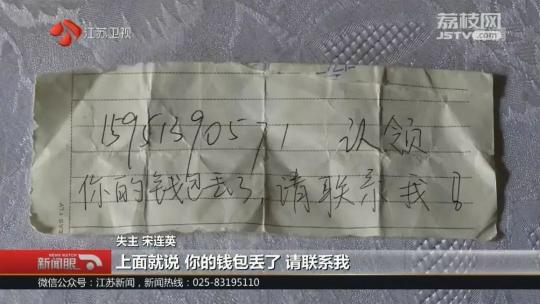 江苏卫视
荔枝网
JSTV.com
15951390571 认领
你的钱包丢了,请联系我!
失主 宋连英
新闻眼
上面就说 你的钱包丢了 请联系我
微信公众号:江苏新闻,新闻热线:025-83195110